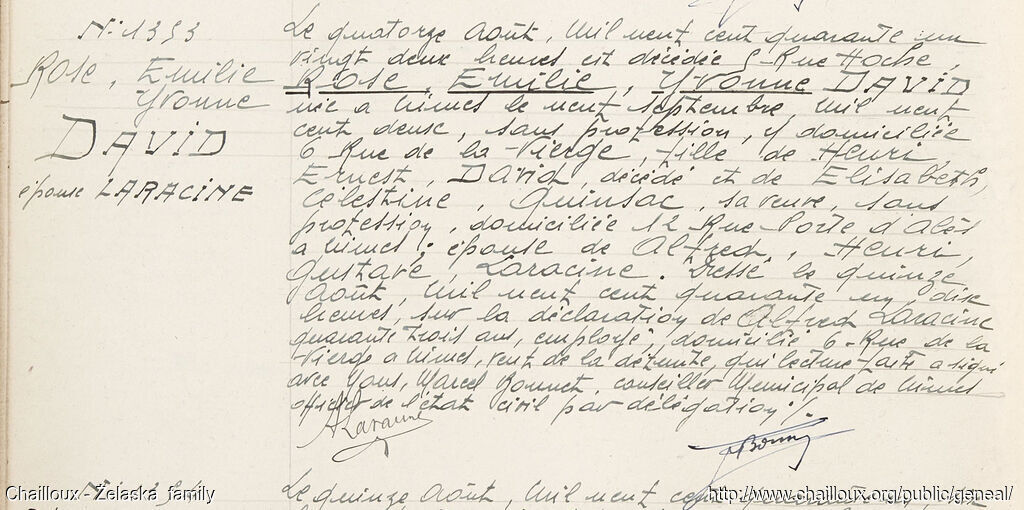 N° 1353
Rose, Emilie
Yvonne
DAVID
épouse LARACINE
Le quatorze Août, mil neuf cent quarante un
vingt deux heures est décédée 5 Rue Hoche,
Rose, Emilie, Yvonne DAVID
née a Nimes le neuf septembre, mil neuf
cent deux, sans profession, y domiciliée
6 Rue de la Vierge, fille de Henri,
Ernest, David, décédé et de Elisabeth,
Célestine, Quinsac, sa veuve, sans
profession, domiciliée 12 Rue Porte d'Alès
a Nimes; épouse de Alfred, Henri,
Gustave, Laracine. Dressé le quinze
Août, mil neuf cent quarante un, dix
heures, sur la déclaration de Alfred Laracine
quarante trois ans, employé, domicilié 6 Rue de la
Vierge a Nimes, veuf de la défunte, qui lecture faite a signé
avec Nous, Marcel Bonnet, conseiller Municipal de Nimes
officier de l'état civil par délégation ./.
ALaracine
Le quinze Août, mil neuf cent
Chailloux - Żelaska family
http://www.chailloux.org/public/geneal/